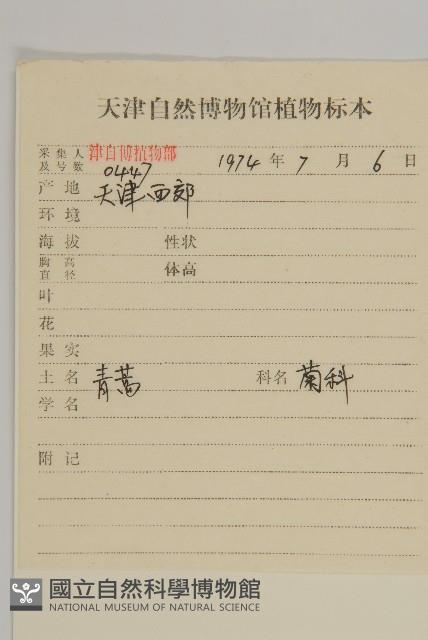 天津自然博物馆植物标本
采集人及号数 津自博植物部 0447 1974年7月6日
产地 天津西郊
环境
海拔 性状
胸高直径 体高
叶
花
果实
土名 青蒿 科名 菊科
学名
附记
國立自然科學博物館
NATIONAL MUSEUM OF NATURAL SCIENCE